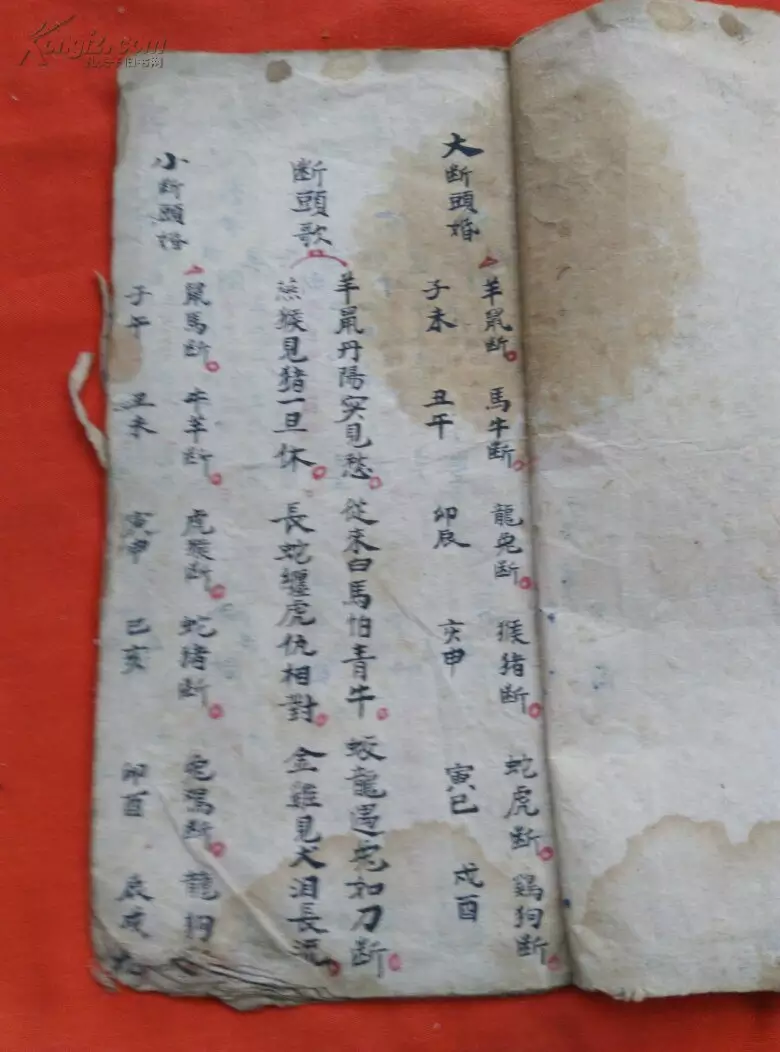 大断頭婚
羊鼠断 馬牛断 龍兔断 猴猪断 蛇虎断 鷄狗断
子未 丑午 卯辰 亥申 寅巳 戌酉
断頭歌
羊鼠丹陽实見愁 從来白馬怕青牛 蛟龍遇兔如刀断
猴見猪一旦休 長蛇纏虎仇相對 金雞見犬泪長流
小断頭婚
鼠馬断 牛羊断 虎猴断 蛇猪断 兔鸡断 龍狗
子午 丑未 寅申 巳亥 卯酉 辰戌
Kongfz.com
孔夫子旧书网